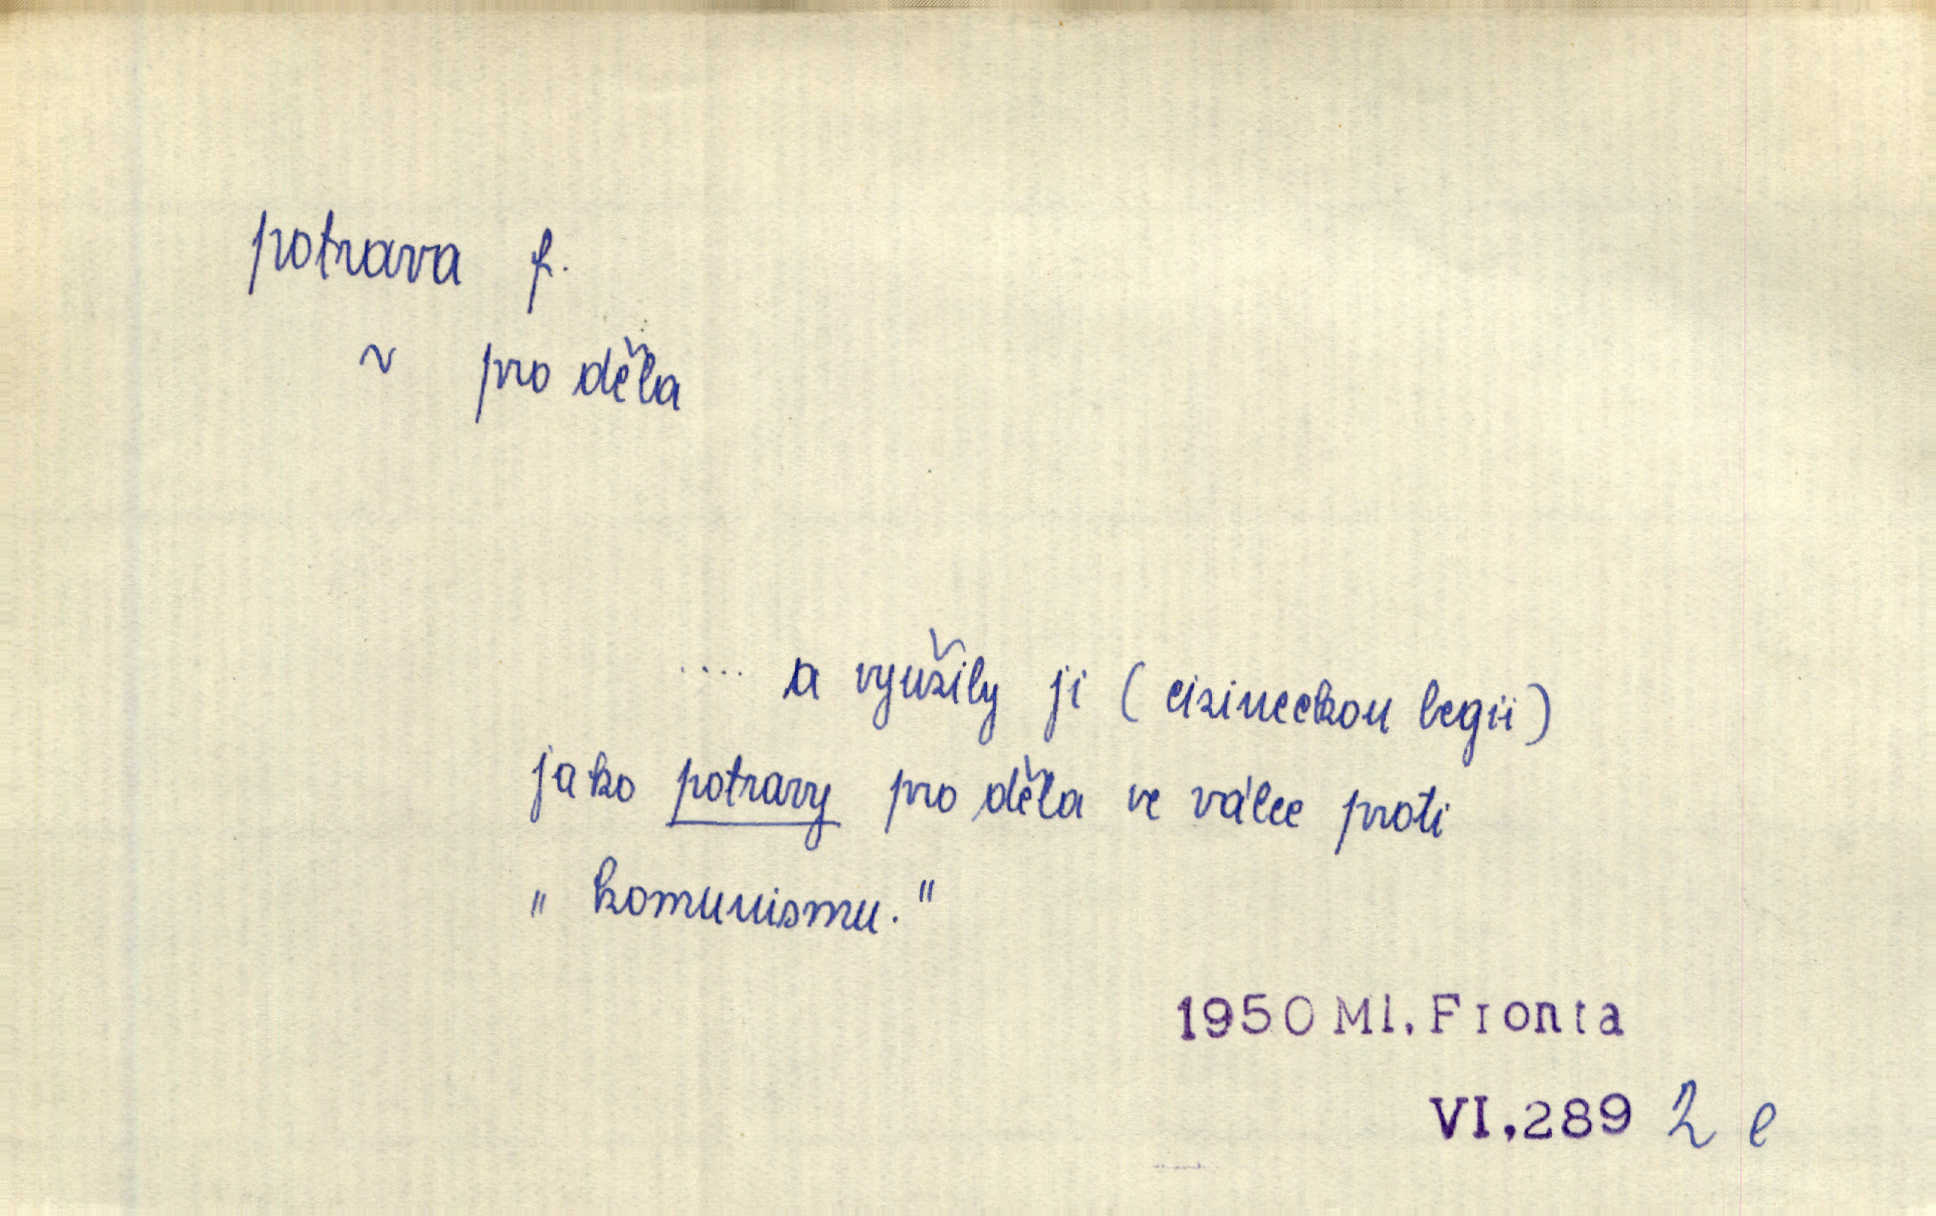 potrava f.
~ pro děla
.... a využily ji ( cizineckou legii )
jako potravy pro děla ve válce proti
„ komunismu."
1950 Ml. Fronta
VI,289 2 e